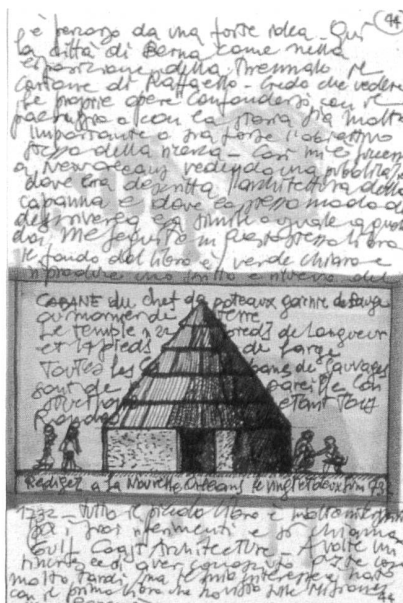 44
è percorso da una forte idea - Qui
la città di Berna come nella
esposizione della Triennale il
cartone di Raffaello - Credo che vedere
le proprie opere confondersi con il
paesaggio o con la storia sia molto
importante o sia forse l'obiettivo
stesso della ricerca - Così mi è
a New Orleans vedendo una pubblicazione
dove era descritta l'architettura della
capanna e dove lo stesso modo di
descrivere era simile o uguale a quello
da me seguito in questo stesso libro
il fondo del libro è verde chiaro e
riproduce uno scritto e
CABANE du chef de poteaux garnie de
ou manier de terre
Le temple a 22 pieds de Longueur
et 14 pieds de Large
Toutes les cabanes de sauvages
sont de pareille con
struction étant Tous
Rondes
Redigez a la Nouvelle Orleans le vingt et deux
1732 - Tutto il piccolo libro è molto
riferimenti e si chiama
Gulf Coast Architecture - A volte mi
rincresce di aver conosciuto
molto tardi, ma il mio interesse è nato
con il primo libro che ho
44